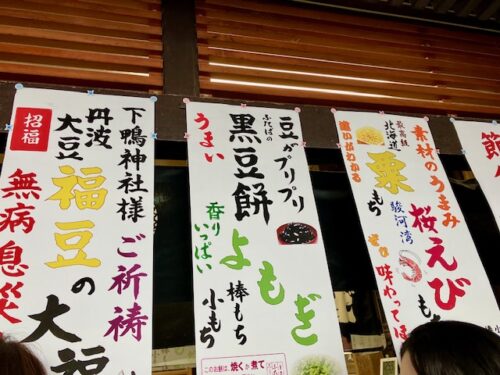 下鴨神社様
ご祈祷
丹波
大豆
福豆の大福
招福
無病息災
豆がプリプリ
ふたばの
黒豆餅
うまい
香り
いっぱい
よもぎ
棒もち
小もち
このお餅は、焼くか煮て
素材のうまみ
駿河湾
桜えびもち
最高級
北海道
粟もち
違いがわかる
ぜひ味わってほ